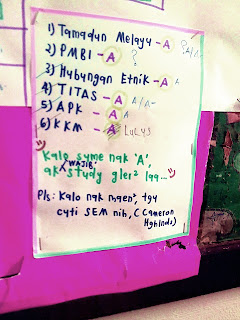 1) Tamadun Melayu - A ? A/A-
2) PMBI - A ?
3) Hubungan Etnik - A A
4) TITAS - A A/A-
5) APK - A A
6) KKM - A LULUS
Kalo syme nak 'A',
WAJIB
ak study gler² laa...
Pls: Kalo nak maen², tgu
cyti SEM nih, (Cameron
Hghlnds)